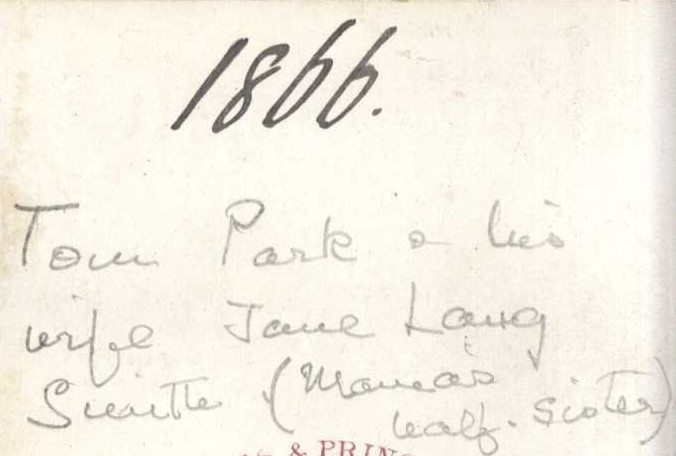 1866.
Tom Park & his
wife Jane Lang
Smith (Mama's
half-sister)
& PRIN